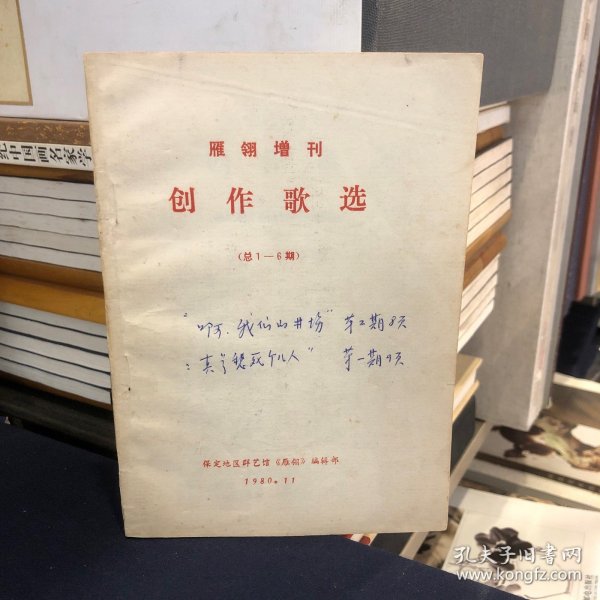 雁翎增刊
创作歌选
（总1—6期）
"啊,我们山井場" 第2期8页
第一期9页
保定地区群艺馆《雁翎》编辑部
1980.11
纪中国画名家学
孔夫子旧书网
www.kongfz.com